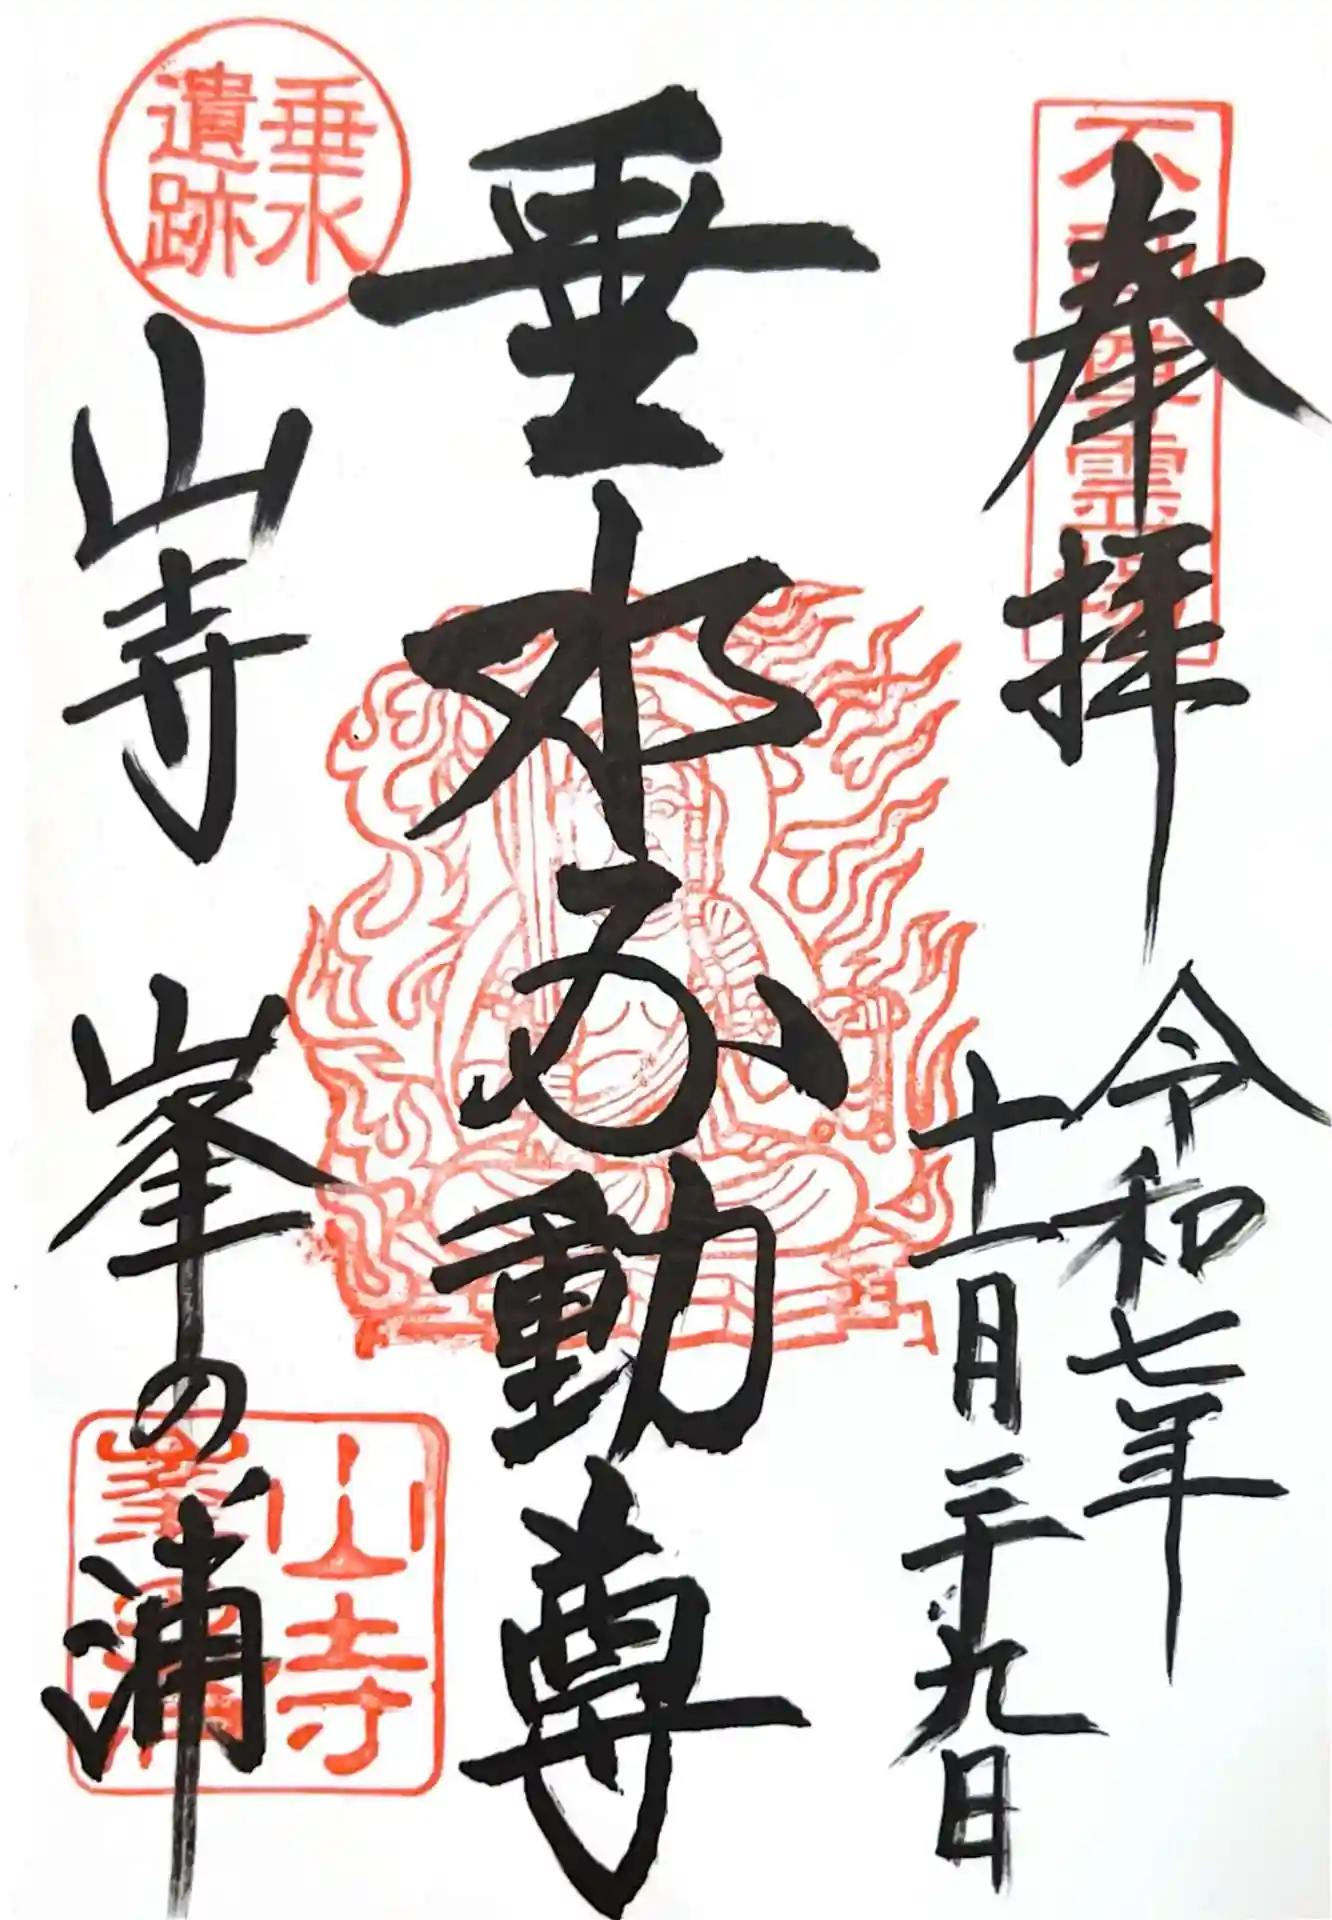 奉拝
令和七年
十一月二十九日
垂水不動尊
山寺
峯の浦
不動尊霊場
垂水
遺跡
山寺
峯浦